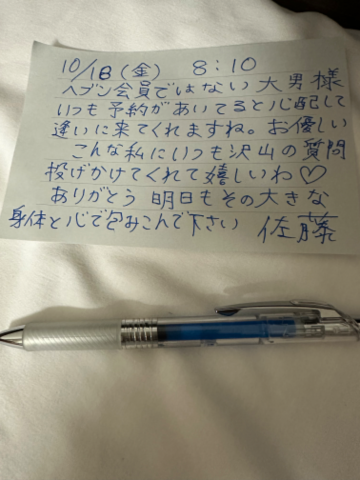 10/18(金) 8:10
ヘブン会員ではない大男様
いつも予約があいてると心配して
逢いに来てくれますね。お優しい
こんな私にいつも沢山の質問
投げかけてくれて嬉しいわ♡
ありがとう 明日もその大きな
身体と心で包みこんで下さい 佐藤